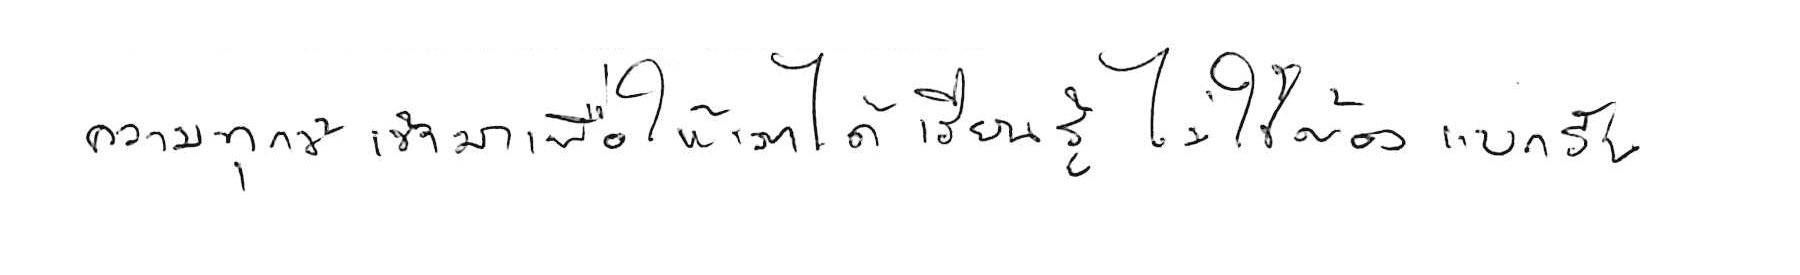 ความทุกข์ เข้ามาเพื่อให้เราได้ เรียนรู้ ไม่ใช้ต้อง แบกรับ